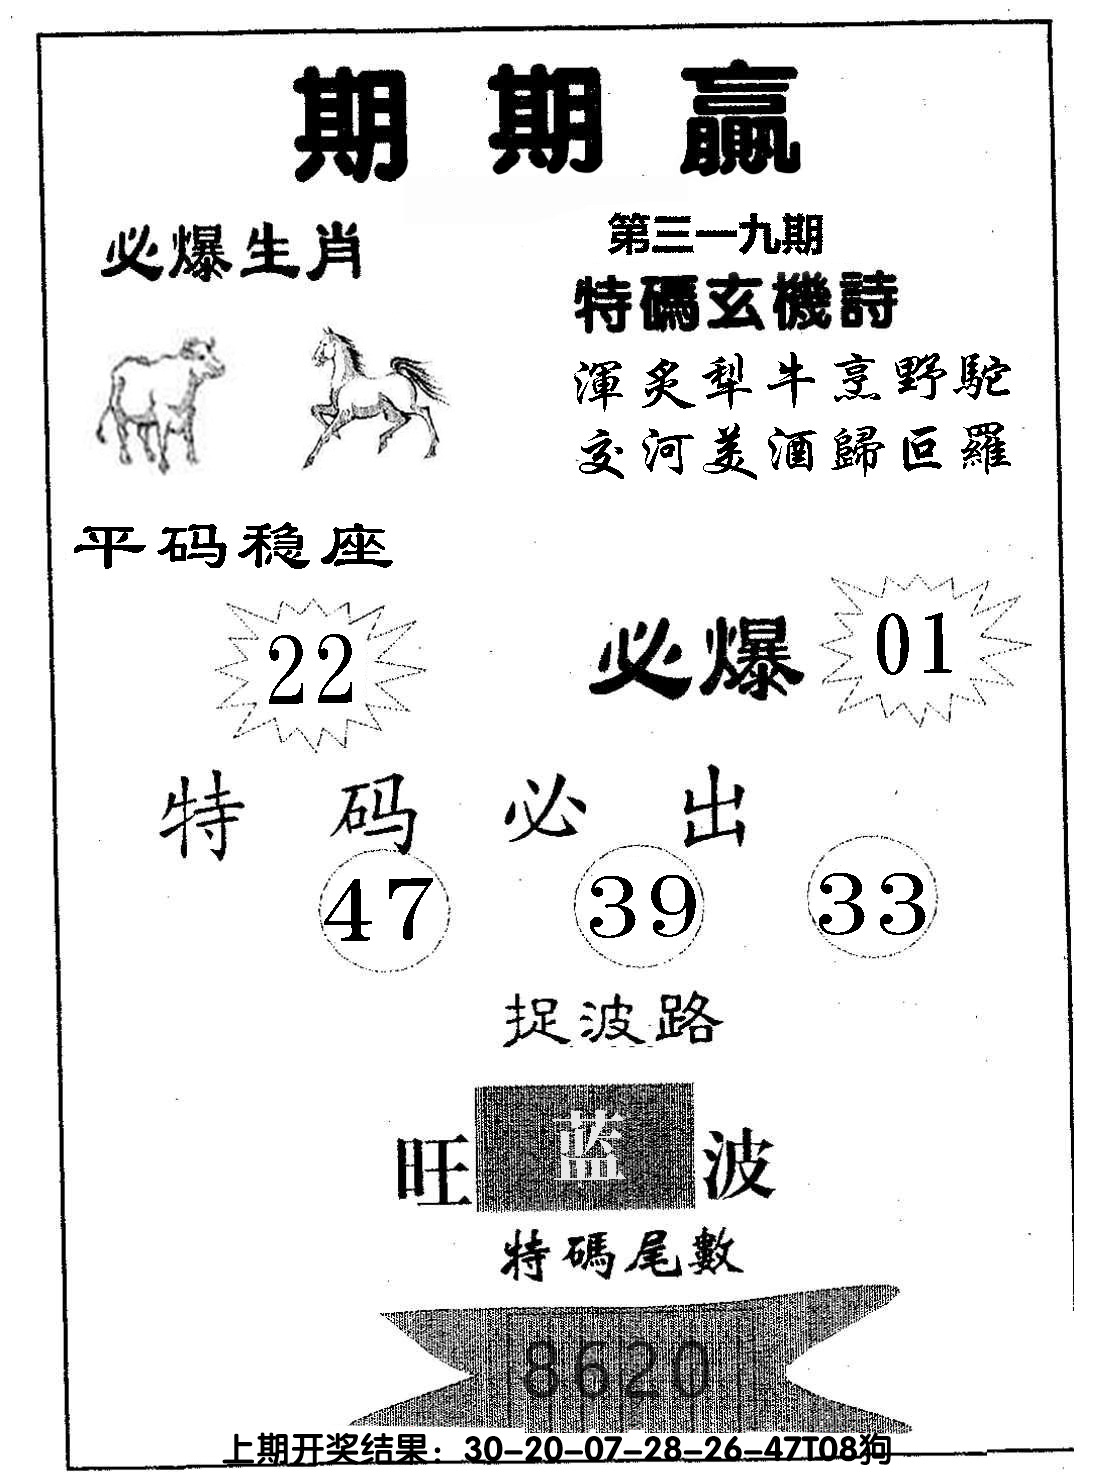 期期赢
必爆生肖
第三一九期
特碼玄機詩
渾炙犁牛烹野駝
交河美酒歸叵羅
平码稳座
22
必爆 01
特码必出
47 39 33
捉波路
旺 蓝 波
特碼尾數
8620
上期开奖结果：30-20-07-28-26-47T08狗